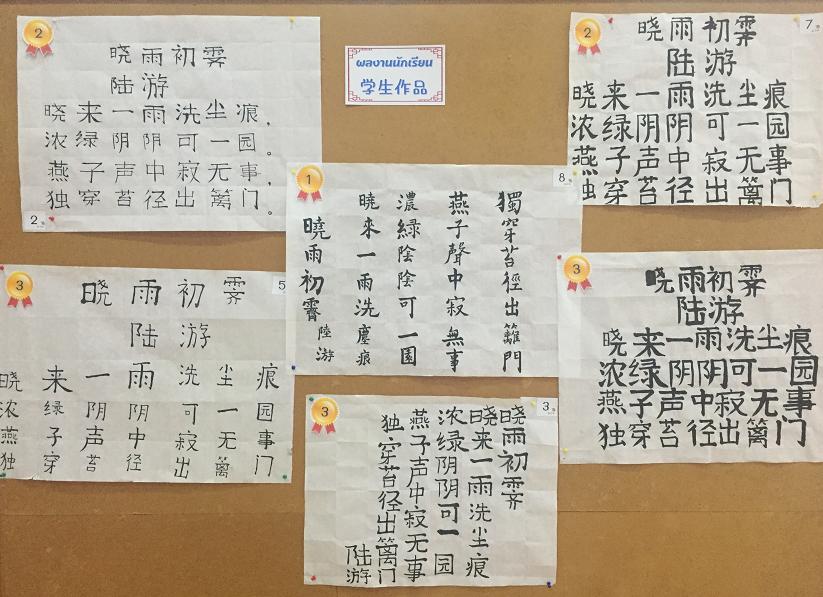 2
晓雨初霁
陆游
晓来一雨洗尘痕，
浓绿阴阴可一园。
燕子声中寂无事，
独穿苔径出篱门。
2
ผลงานนักเรียน
学生作品
2
7
晓雨初霁
陆游
晓来一雨洗尘痕
浓绿阴阴可一园
燕子声中寂无事
独穿苔径出篱门
1
8
曉雨初霽
陸游
曉來一雨洗塵痕
濃綠陰陰可一園
燕子聲中寂無事
獨穿苔徑出籬門
3
5
晓雨初霁
陆游
晓来一雨洗尘痕
浓绿阴阴可一园
燕子声中寂无事
独穿苔径出篱门
3
3
晓雨初霁
晓来一雨洗尘痕
浓绿阴阴可一园
燕子声中寂无事
独穿苔径出篱门
陆游
3
晓雨初霁
陆游
晓来一雨洗尘痕
浓绿阴阴可一园
燕子声中寂无事
独穿苔径出篱门